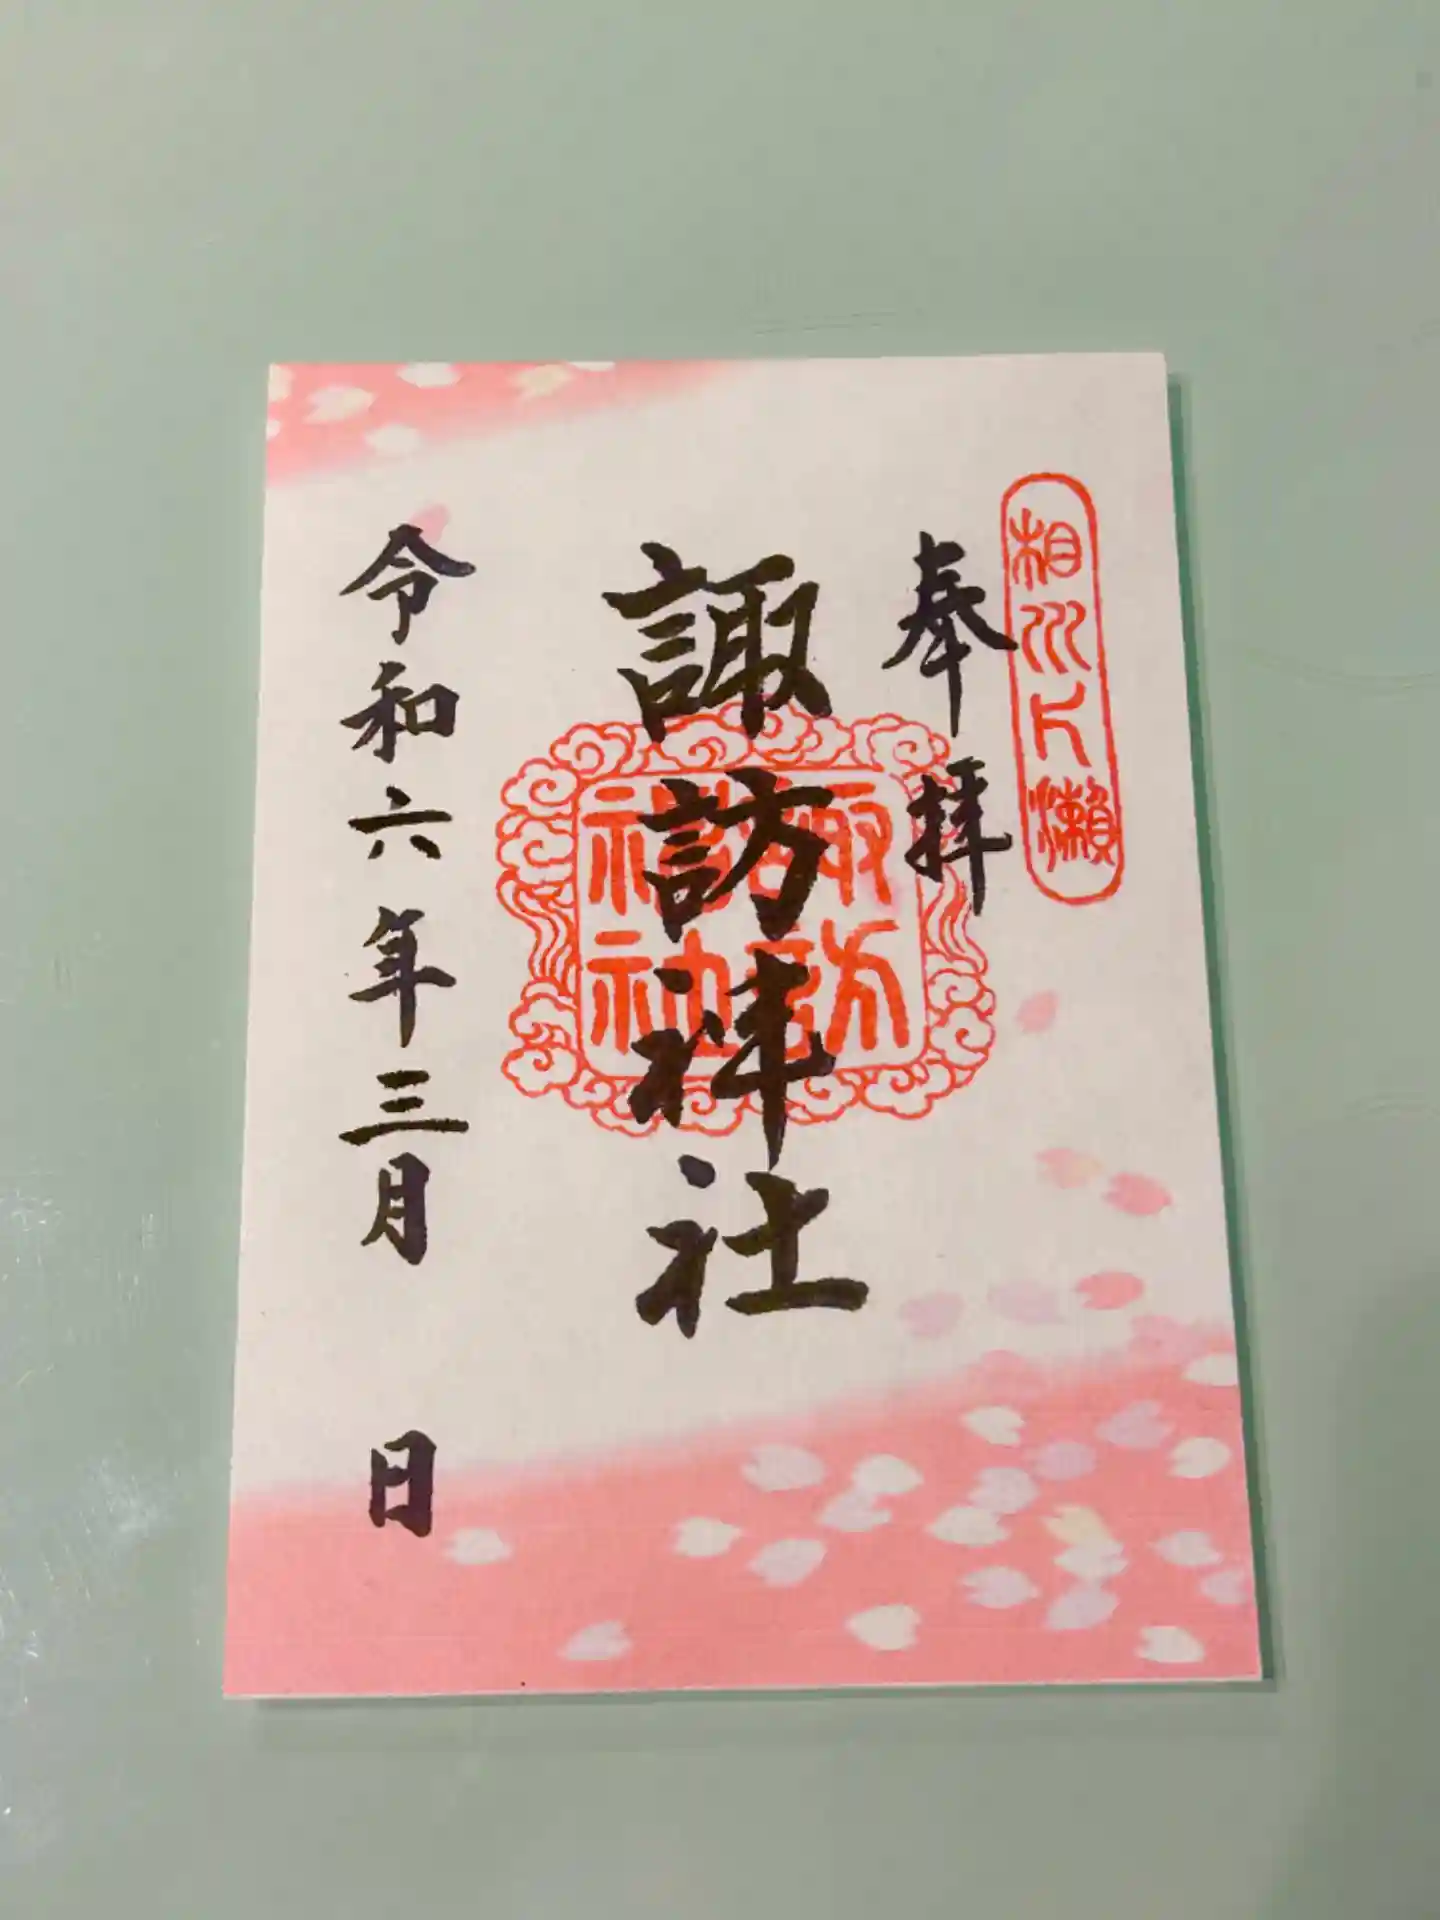 相州片瀬
奉拝
諏訪神社
諏訪神社
令和六年三月 日